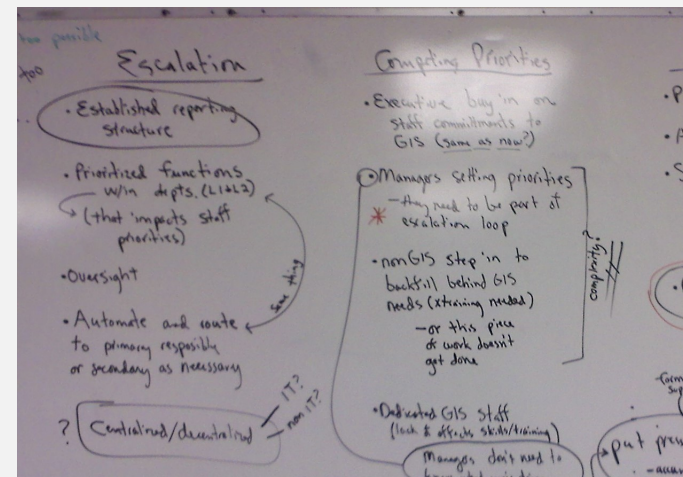 too possible
too
Escalation
• Established reporting
structure
• Prioritized functions
w/in depts. (L1&L2)
(that impacts staff
priorities)
• Oversight
same thing
• Automate and route
to primary resposibly
or secondary as necessary
? Centralized/decentralized
IT?
non IT?
Competing Priorities
• Executive buy in on
staff committments to
GIS (same as now?)
• Managers setting priorities
- they need to be part of
* escalation loop
• nonGIS step in to
backfill behind GIS
needs (xtraining needed)
- or this piece
of work doesn't
get done
complexity?
• Dedicated GIS staff
(lack of affects skills/training)
Managers don't need to
• P
• A
• S
put